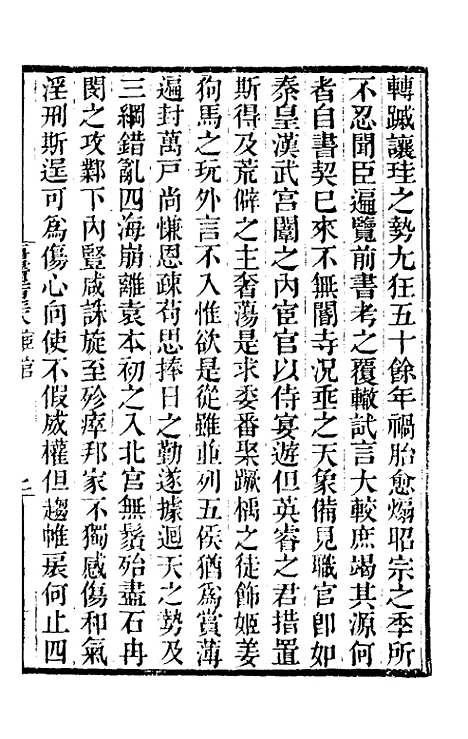 轉蹠讓珪之勢九狂五十餘年禍胎愈煽昭宗之季所
不忍聞臣遍覽前書考之覆轍試言大較庶竭其源何
者自書契已來不無閽寺況垂之天象備見職官卽如
秦皇漢武宮闈之內宦官以侍宴遊但英睿之君措置
斯得及荒僻之主奢蕩是求委番聚蹶楀之徒飾姬姜
狗馬之玩外言不入惟欲是從雖並列五侯猶為賞薄
遍封萬戶尚慊恩疎苟思捧日之勤遂據迴天之勢及
三綱錯亂四海崩離袁本初之入北宮無鬚殆盡石冉
閔之攻鄴下內豎咸誅旋至殄瘁邦家不獨感傷和氣
淫刑斯逞可為傷心向使不假威權但趨帷扆何止四